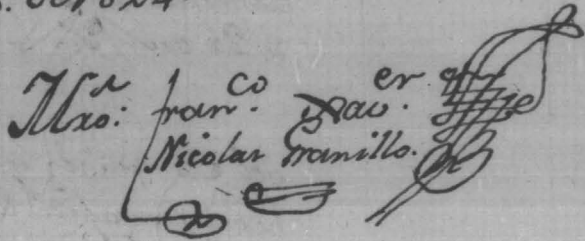 Mro: fran.co Xav.er
Nicolas Granillo.